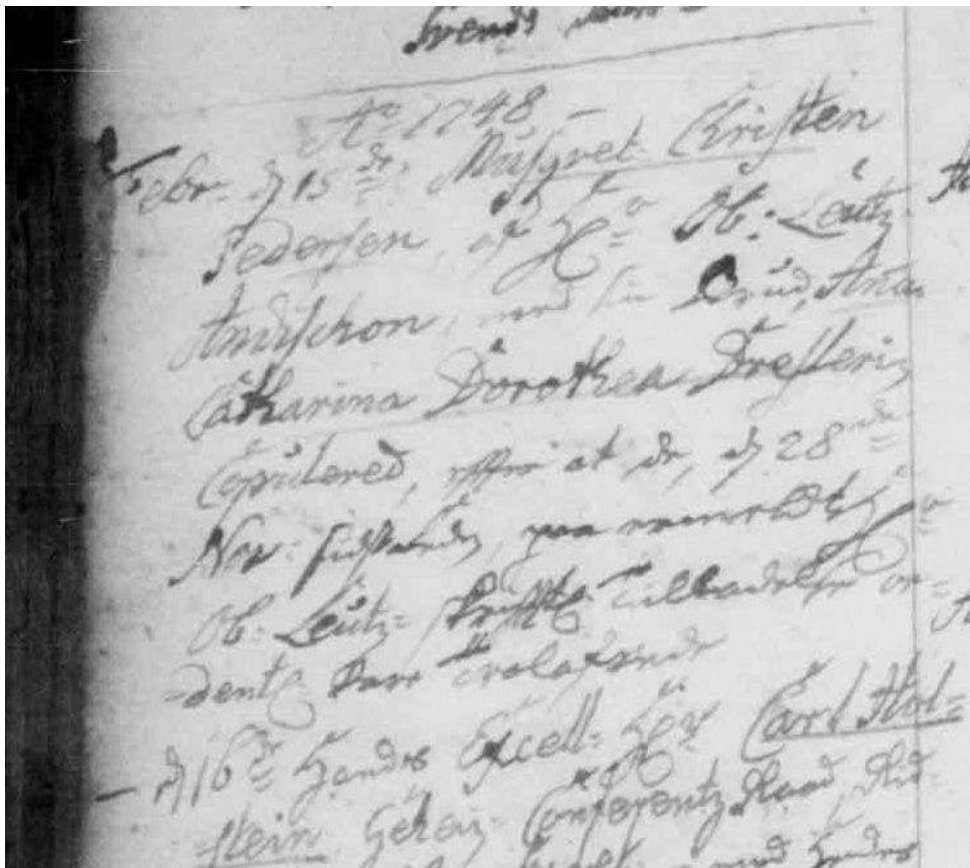 Svends
Ao 1748, –
Febr. d 15de Musqvet. Christen
Pedersen, af Hr Ob: Leütz
med sin Brud, Ana
Catharina Dorothea Dresleris
Copulered, efter at de, d 28de
Nov: sidstleden, paa
Ob: Leütz= skriftl: Tilladelse or=
dentl: vare trolofvede
– d 16de Hands Excell= Hr Carl Hol=
stein Geheim Conferentz Raad, Rid=
med Hendes